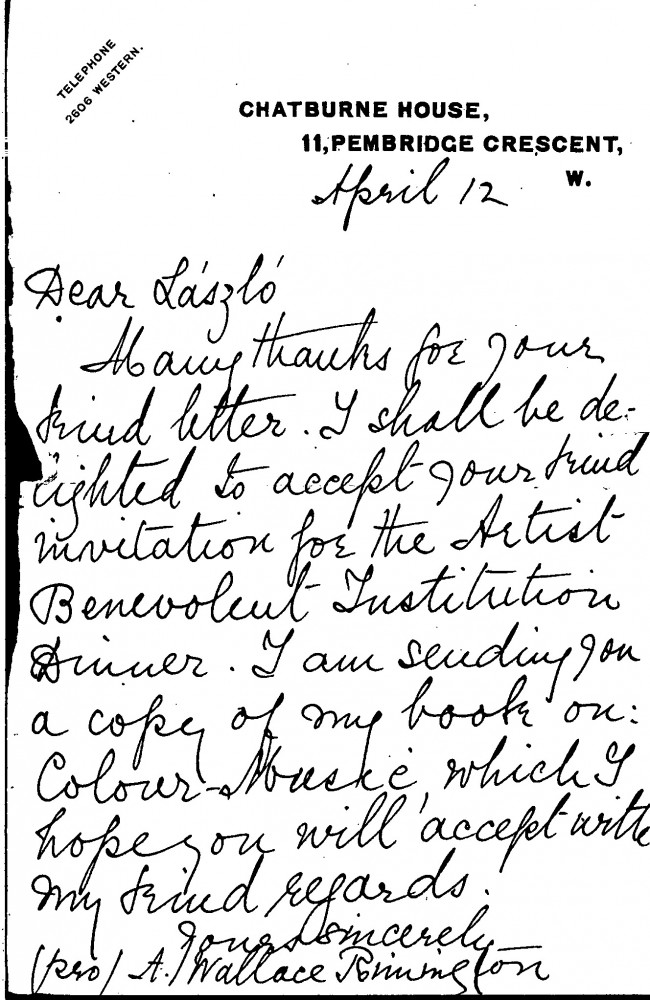 TELEPHONE
2606 WESTERN.
CHATBURNE HOUSE,
11, PEMBRIDGE CRESCENT,
W.
April 12
Dear László
Many thanks for your
kind letter. I shall be de-
lighted to accept your kind
invitation for the Artist
Benevolent Institution
Dinner. I am sending you
a copy of my book on:
Colour-Music, which I
hope you will accept with
my kind regards.
Yours sincerely
(pro) A. Wallace Rimington